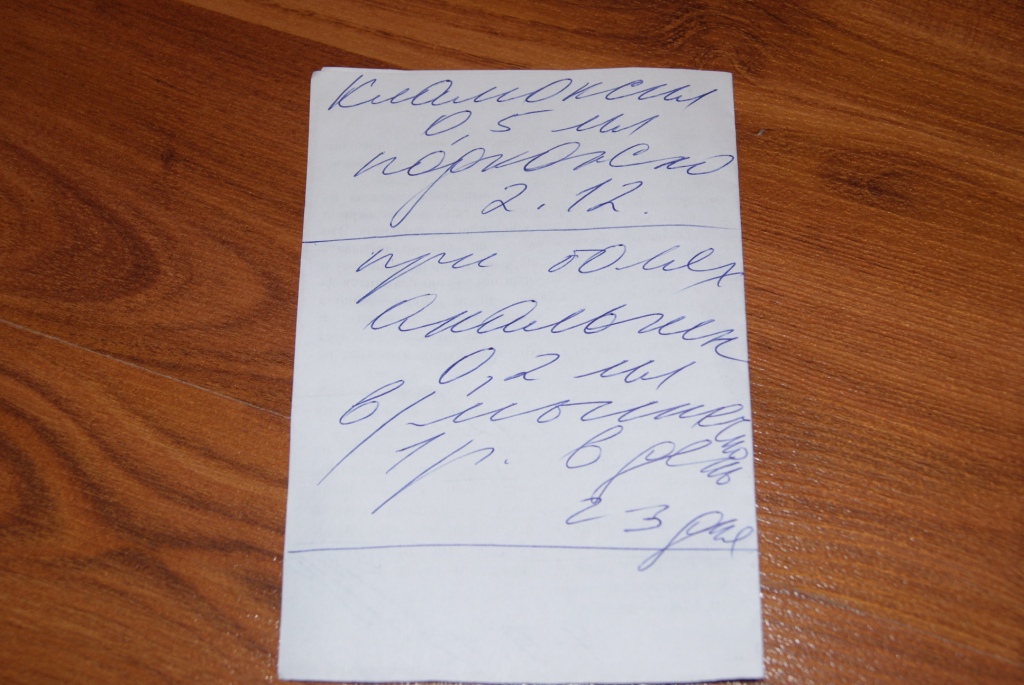 кламоксил
0,5 мл
подкожно
2.12.
при болях
анальгин
0,2 мл
в/мышечно
1 р. в день
2 3 дня